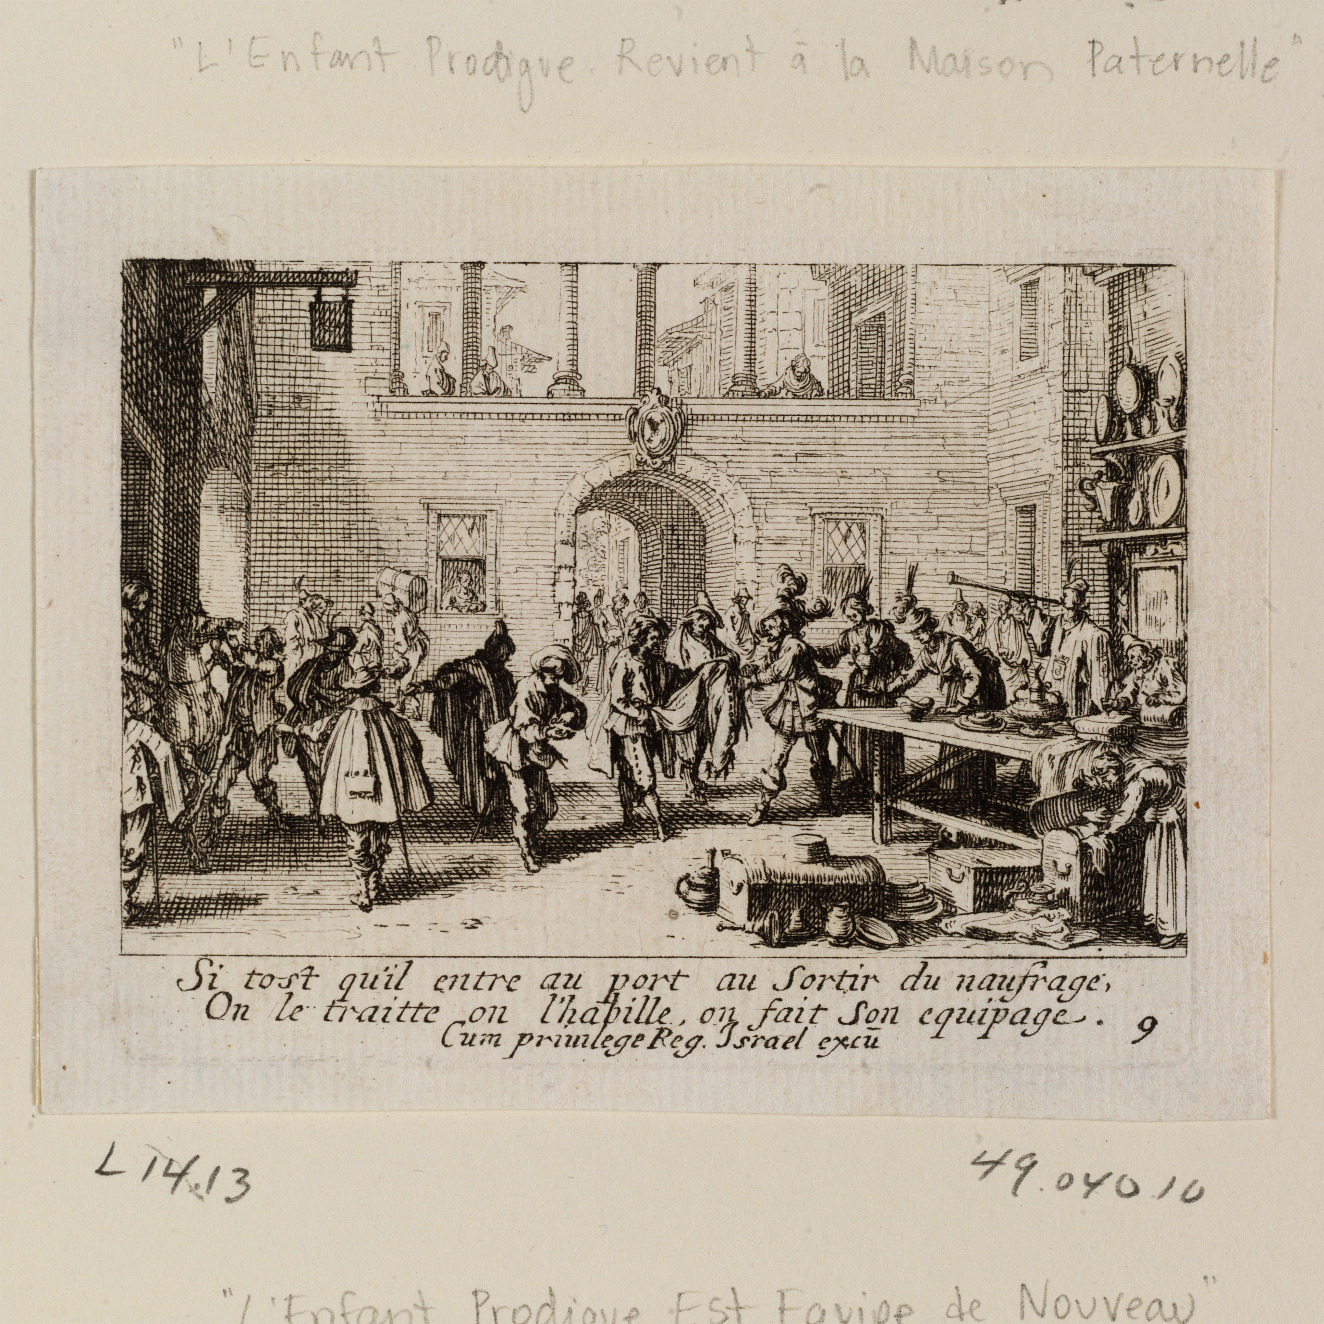 "L'Enfant Prodigue Revient à la Maison Paternelle"
Si tost qu'il entre au port au Sortir du naufrage,
On le traitte on l'habille, on fait Son equipage.
9
Cum priuilege Reg. Israel excū
L 14.13
49.040.10
"L'Enfant Prodigue Est Equipe de Nouveau"